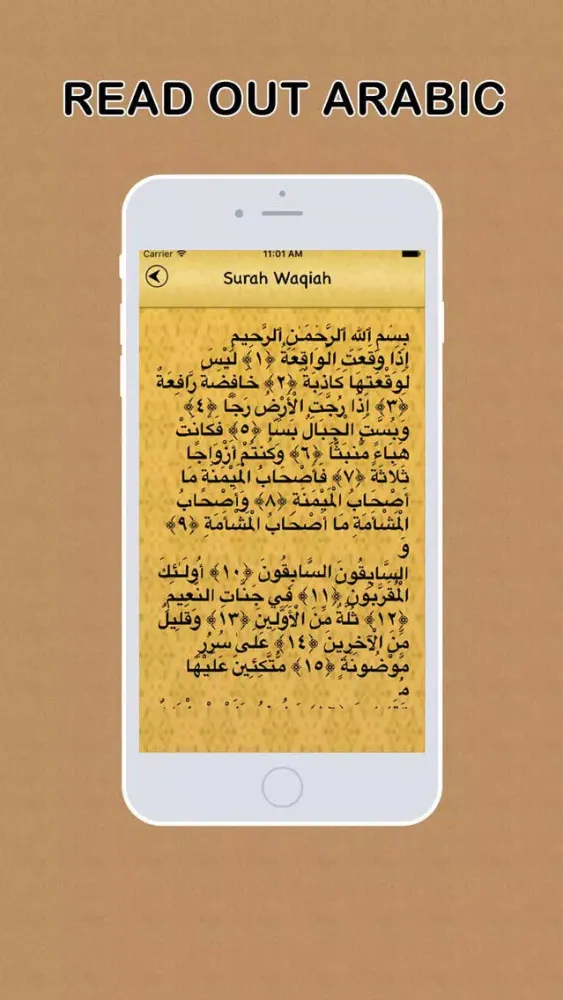 READ OUT ARABIC
Carrier 11:01 AM
Surah Waqiah
بِسْمِ ٱللَّهِ ٱلرَّحْمَـٰنِ ٱلرَّحِيمِ
إِذَا وَقَعَتِ الْوَاقِعَةُ ﴿١﴾ لَيْسَ
لِوَقْعَتِهَا كَاذِبَةٌ ﴿٢﴾ خَافِضَةٌ رَّافِعَةٌ
﴿٣﴾ إِذَا رُجَّتِ الْأَرْضُ رَجًّا ﴿٤﴾
وَبُسَّتِ الْجِبَالُ بَسًّا ﴿٥﴾ فَكَانَتْ
هَبَاءً مُّنبَثًّا ﴿٦﴾ وَكُنتُمْ أَزْوَاجًا
ثَلَاثَةً ﴿٧﴾ فَأَصْحَابُ الْمَيْمَنَةِ مَا
أَصْحَابُ الْمَيْمَنَةِ ﴿٨﴾ وَأَصْحَابُ
الْمَشْأَمَةِ مَا أَصْحَابُ الْمَشْأَمَةِ ﴿٩﴾
وَ
السَّابِقُونَ السَّابِقُونَ ﴿١٠﴾ أُولَـٰئِكَ
الْمُقَرَّبُونَ ﴿١١﴾ فِي جَنَّاتِ النَّعِيمِ
﴿١٢﴾ ثُلَّةٌ مِّنَ الْأَوَّلِينَ ﴿١٣﴾ وَقَلِيلٌ
مِّنَ الْآخِرِينَ ﴿١٤﴾ عَلَىٰ سُرُرٍ
مَّوْضُونَةٍ ﴿١٥﴾ مُّتَّكِئِينَ عَلَيْهَا
مُ